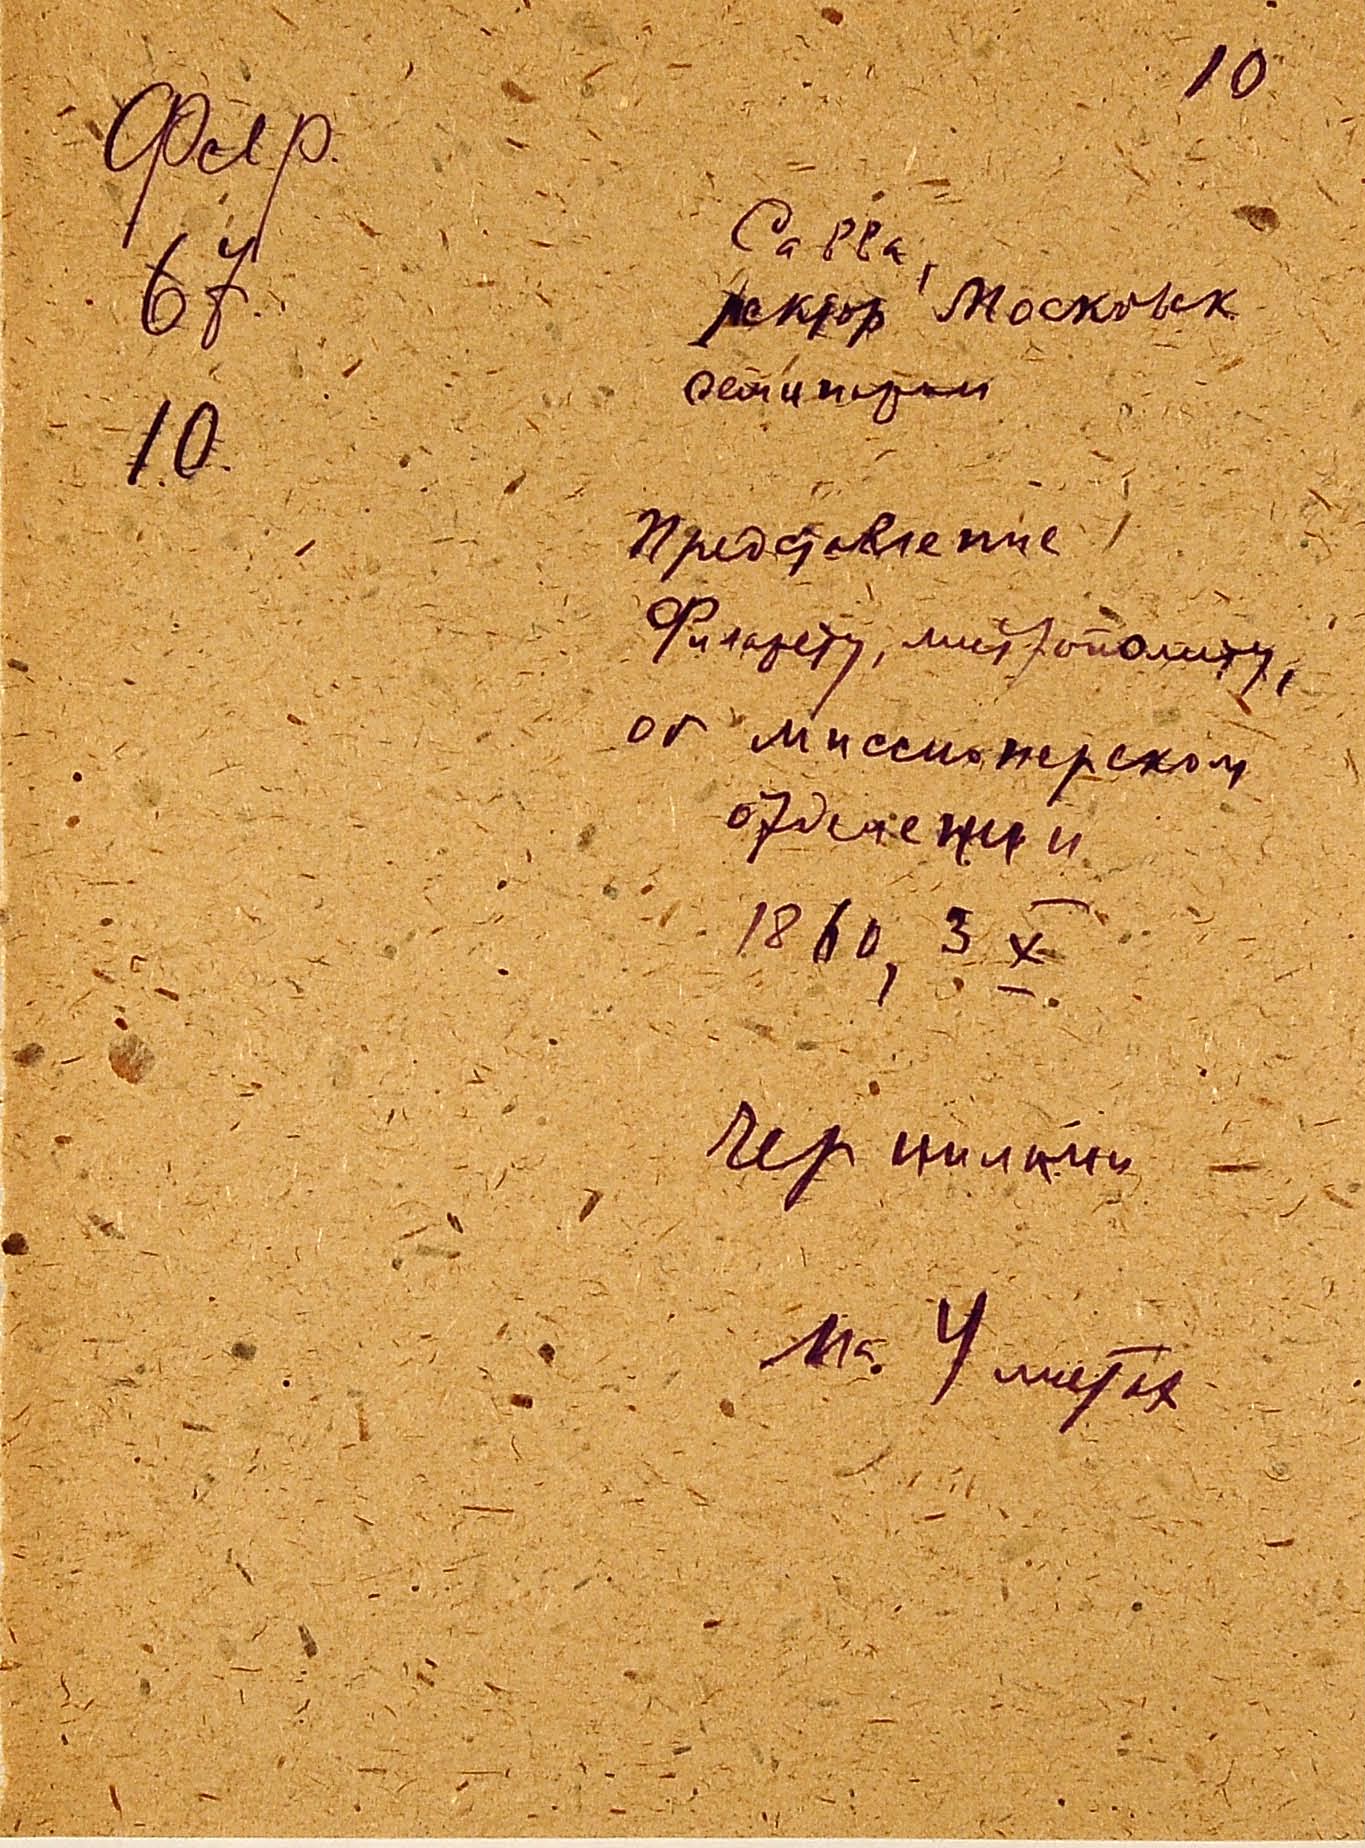 10
Фил р.
67.
10.
Савва,
ректор Московск.
семинарии
Представление
Филарету, митрополиту,
об миссионерском
отделении
1860, 3 X.
Чернилами
На 4 листах